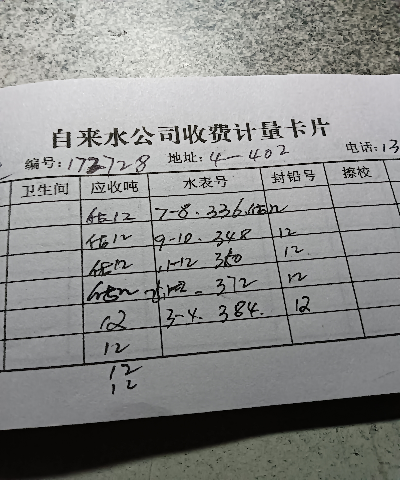 自来水公司收费计量卡片
编号:172728 地址:4-402 电话:13
卫生间 应收吨 水表号 封铅号 擦校
估12 7-8. 336
估12 9-10. 348 12
估12 11-12 360 12
372 12
12 3-4. 384. 12
12
12
12